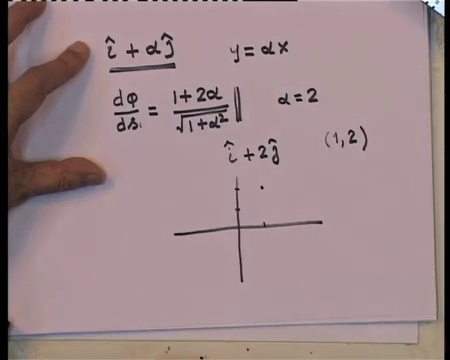 î + αĵ    y = αx
dφ/ds = (1+2α)/√(1+α²) ||    α = 2
î + 2ĵ    (1,2)